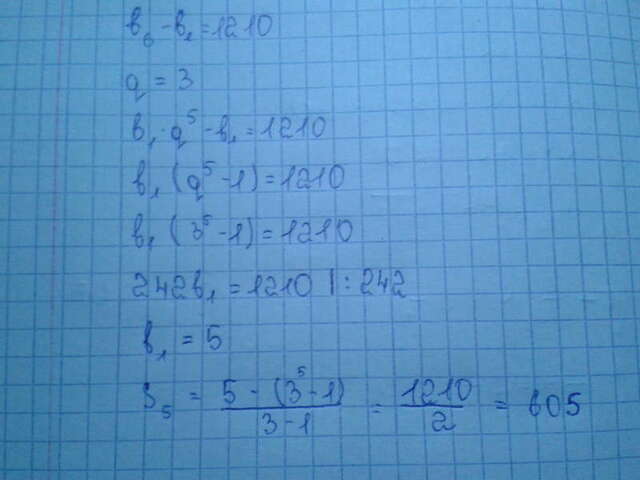 b₆ - b₁ = 1210
q = 3
b₁ · q⁵ - b₁ = 1210
b₁ (q⁵ - 1) = 1210
b₁ (3⁵ - 1) = 1210
242b₁ = 1210 | : 242
b₁ = 5
S₅ = 5 · (3⁵ - 1) / 3 - 1 = 1210 / 2 = 605